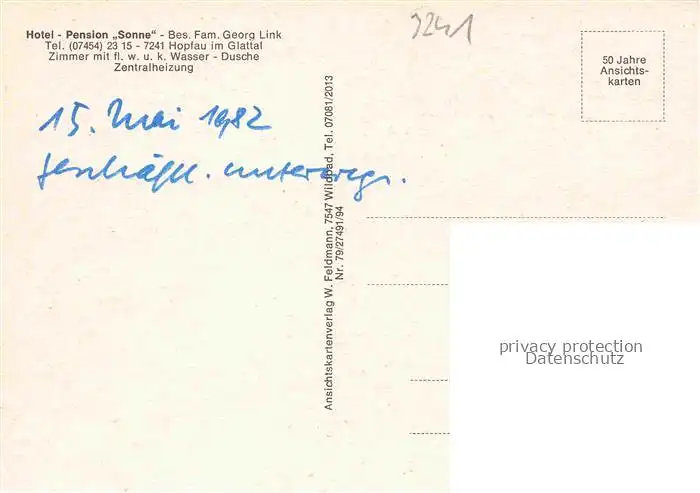 Hotel - Pension „Sonne“ - Bes. Fam. Georg Link
Tel. (07454) 23 15 - 7241 Hopfau im Glattal
Zimmer mit fl. w. u. k. Wasser - Dusche
Zentralheizung
15. Mai 1982
geschäftl. unterwegs.
Ansichtskartenverlag W. Feldmann, 7547 Wildbad, Tel. 07081/2013
Nr. 79/27491/94
7241
50 Jahre
Ansichts-
karten
privacy protection
Datenschutz